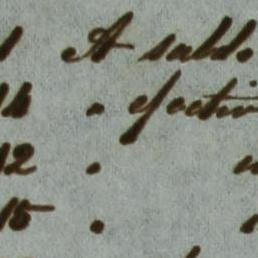 1 A saldo.
14 " efectiv
12 "
15 "